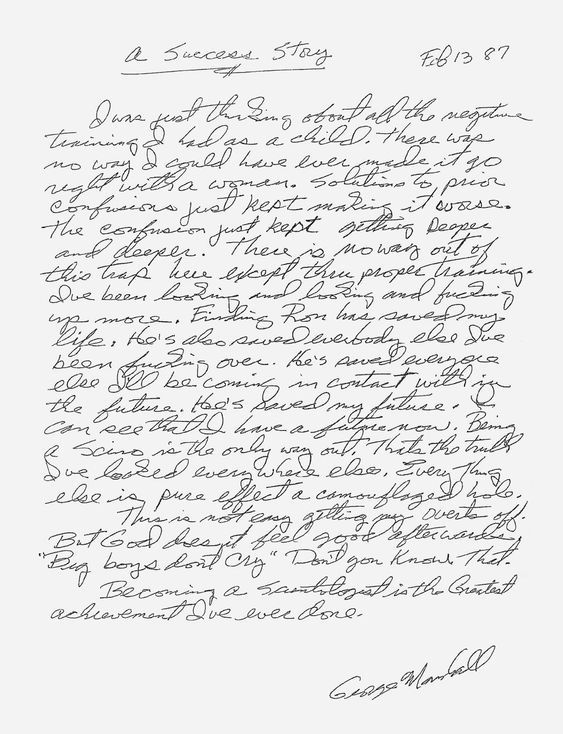 A Success Story
Feb 13 87
I was just thinking about all the negitive
training I had as a child. There was
no way I could have ever made it go
right with a woman. Solutions to prior
confusions just kept making it worse.
The confusion just kept getting Deeper
and deeper. There is no way out of
this trap here except thru proper training.
I've been looking and looking and fucking
up more. Finding Ron has saved my
life. He's also saved everbody else I've
been fucking over. He's saved everyone
else I'll be coming in contact with in
the future. He's saved my future. I
can see that I have a future now. Being
a Scino is the only way out. Thats the truth
I've looked everywhere else. Every Thing
else is pure effect a camouflaged hole.
This is not easy getting my overts off.
But God does it feel good afterwards
"Big boys dont Cry" Don't you Know That.
Becoming a Scientologist is the Greatest
achievement I've ever done.
George Marshall